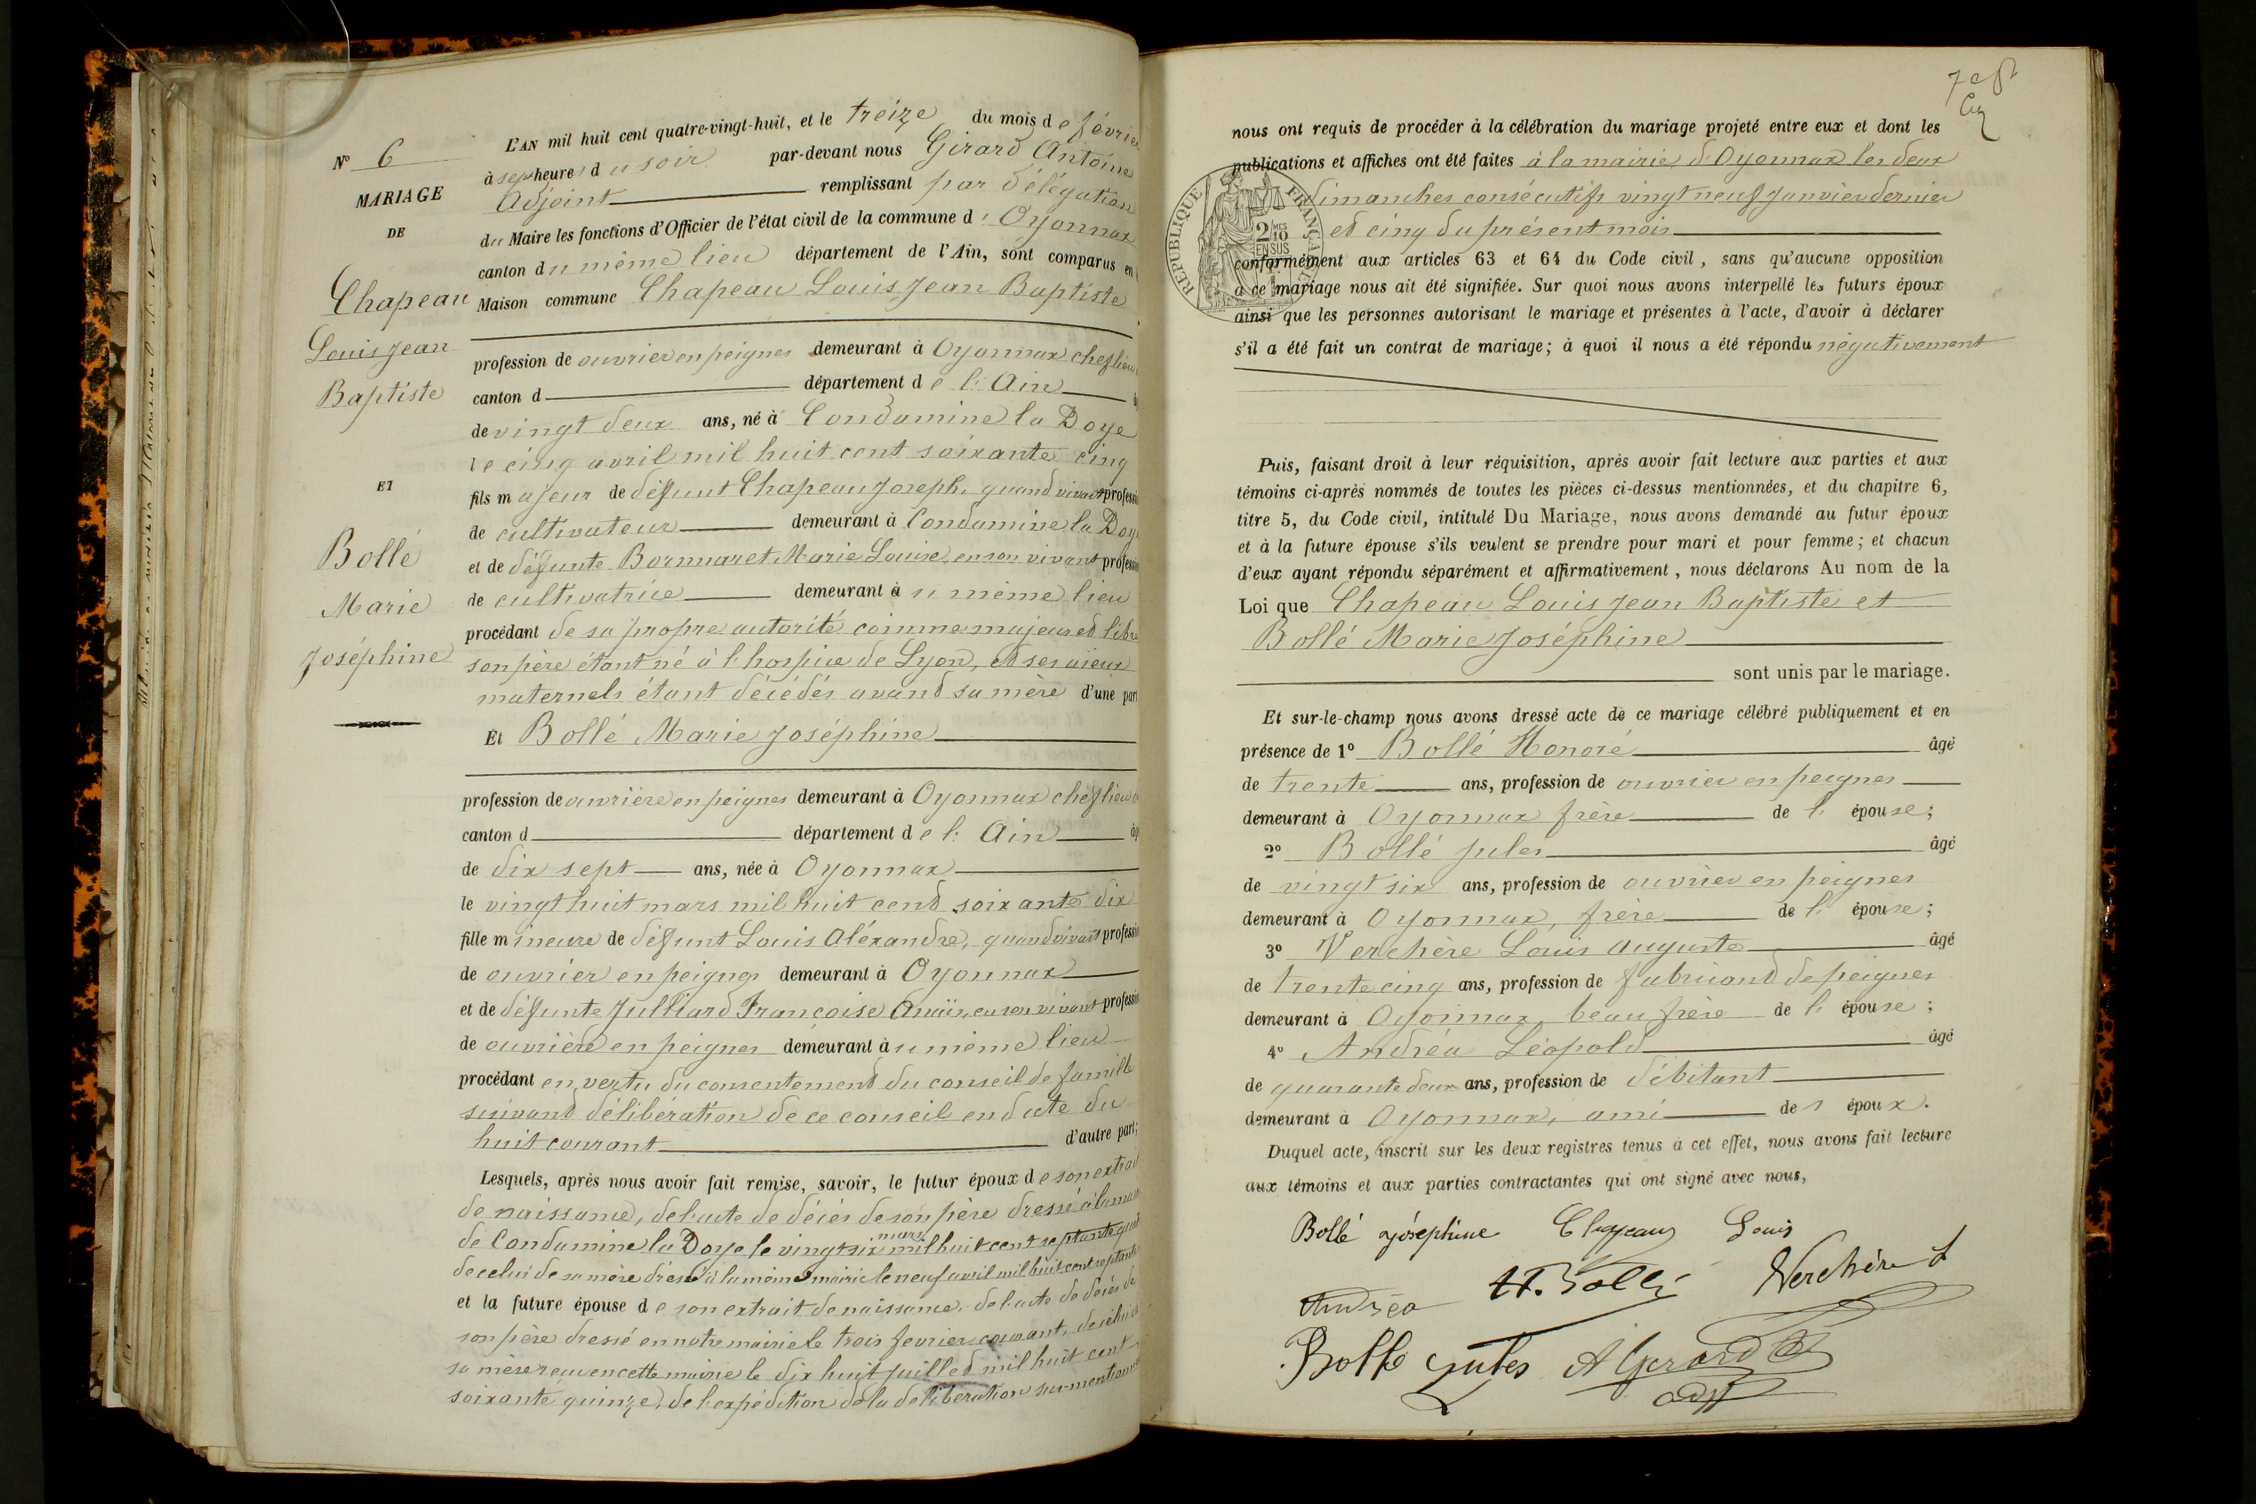 N° 6
MARIAGE
DE
Chapeau
Louis Jean
Baptiste
ET
Bollé
Marie
Joséphine
L'AN mil huit cent quatre-vingt-huit, et le treize du mois de février
à sept heures du soir par-devant nous Girard Antoine
Adjoint remplissant par délégation
du Maire les fonctions d'Officier de l'état civil de la commune d'Oyonnax
canton du même lieu département de l'Ain, sont comparus en
Maison commune Chapeau Louis Jean Baptiste
profession de ouvrier en peignes demeurant à Oyonnax chef lieu
canton d département de l'Ain
de vingt deux ans, né à Condamine la Doye
le cinq avril mil huit cent soixante cinq
fils majeur de défunt Chapeau Joseph, quand vivait profession
de cultivateur demeurant à Condamine la Doye
et de défunte Bormaret Marie Louise, en son vivant profession
de cultivatrice demeurant au même lieu
procédant de sa propre autorité comme majeur et libre
son père étant né à l'hospice de Lyon, et ses aïeux
maternels étant décédés avant sa mère d'une part
Et Bollé Marie Joséphine
profession de ouvrière en peignes demeurant à Oyonnax chef lieu
canton d département de l'Ain
de dix sept ans, née à Oyonnax
le vingt huit mars mil huit cent soixante dix
fille mineure de défunt Louis Aléxandre, quand vivait profession
de ouvrier en peignes demeurant à Oyonnax
et de défunte Julliard Françoise Anaïs, en son vivant profession
de ouvrière en peignes demeurant au même lieu
procédant en vertu du consentement du conseil de famille
suivant délibération de ce conseil en date du
huit courant d'autre part;
Lesquels, après nous avoir fait remise, savoir, le futur époux de son extrait
de naissance, de l'acte de décès de son père dressé à la mairie
de Condamine la Doye le vingt six mars mil huit cent septante quatre
de celui de sa mère dressé à la même mairie le neuf avril mil huit cent septante
et la future épouse de son extrait de naissance, de l'acte de décès de
son père dressé en notre mairie le trois février courant, de celui de
sa mère reçu en cette mairie le dix huit juillet mil huit cent
soixante quinze, de l'expédition de la délibération sus-mentionnée
nous ont requis de procéder à la célébration du mariage projeté entre eux et dont les
publications et affiches ont été faites à la mairie d'Oyonnax les deux
dimanches consécutifs vingt neuf janvier dernier
et cinq du présent mois
RÉPUBLIQUE FRANÇAISE
2/10 MES
EN SUS
conformément aux articles 63 et 64 du Code civil, sans qu'aucune opposition
à ce mariage nous ait été signifiée. Sur quoi nous avons interpellé les futurs époux
ainsi que les personnes autorisant le mariage et présentes à l'acte, d'avoir à déclarer
s'il a été fait un contrat de mariage; à quoi il nous a été répondu négativement
Puis, faisant droit à leur réquisition, après avoir fait lecture aux parties et aux
témoins ci-après nommés de toutes les pièces ci-dessus mentionnées, et du chapitre 6,
titre 5, du Code civil, intitulé Du Mariage, nous avons demandé au futur époux
et à la future épouse s'ils veulent se prendre pour mari et pour femme; et chacun
d'eux ayant répondu séparément et affirmativement, nous déclarons Au nom de la
Loi que Chapeau Louis Jean Baptiste et
Bollé Marie Joséphine
sont unis par le mariage.
Et sur-le-champ nous avons dressé acte de ce mariage célébré publiquement et en
présence de 1° Bollé Honoré âgé
de trente ans, profession de ouvrier en peignes
demeurant à Oyonnax frère de l'épouse;
2° Bollé Jules âgé
de vingt six ans, profession de ouvrier en peignes
demeurant à Oyonnax, frère de l'épouse;
3° Verchère Louis Auguste âgé
de trente cinq ans, profession de fabricant de peignes
demeurant à Oyonnax, beau frère de l'épouse;
4° Andréa Léopold âgé
de quarante deux ans, profession de débitant
demeurant à Oyonnax, ami de l'époux.
Duquel acte, inscrit sur les deux registres tenus à cet effet, nous avons fait lecture
aux témoins et aux parties contractantes qui ont signé avec nous,
Bollé joséphine Chapeau Louis
Andréa H. Bollé Verchère A
Bollé jules A Girard
adjt